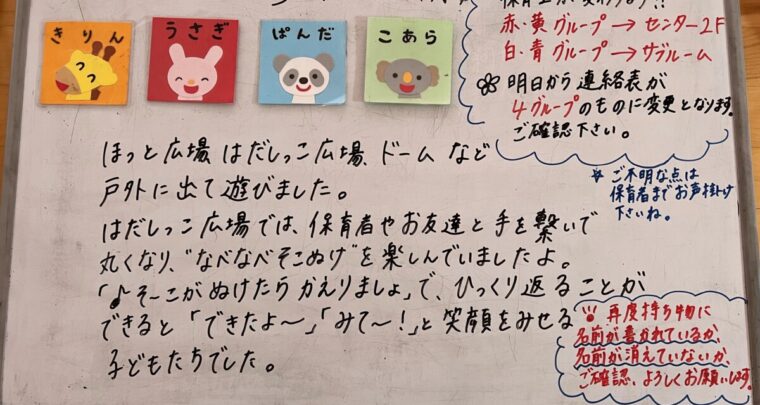 きりん
うさぎ
ぱんだ
こあら
赤・黄グループ→センター2F
白・青グループ→サブルーム
明日から連絡表が
4グループのものに変更となります。
ご確認下さい。
☆ご不明な点は
保育者までお声掛け
下さいね。
ほっと広場、はだしっこ広場、ドームなど
戸外に出て遊びました。
はだしっこ広場では、保育者やお友達と手を繋いで
丸くなり、"なべなべそこぬけ"を楽しんでいましたよ。
「♪そーこがぬけたらかえりましょ」で、ひっくり返ることが
できると「できたよ〜」「みて〜！」と笑顔をみせる
子どもたちでした。
再度持ち物に
名前が書かれているか、
名前が消えていないか、
ご確認、よろしくお願いします。